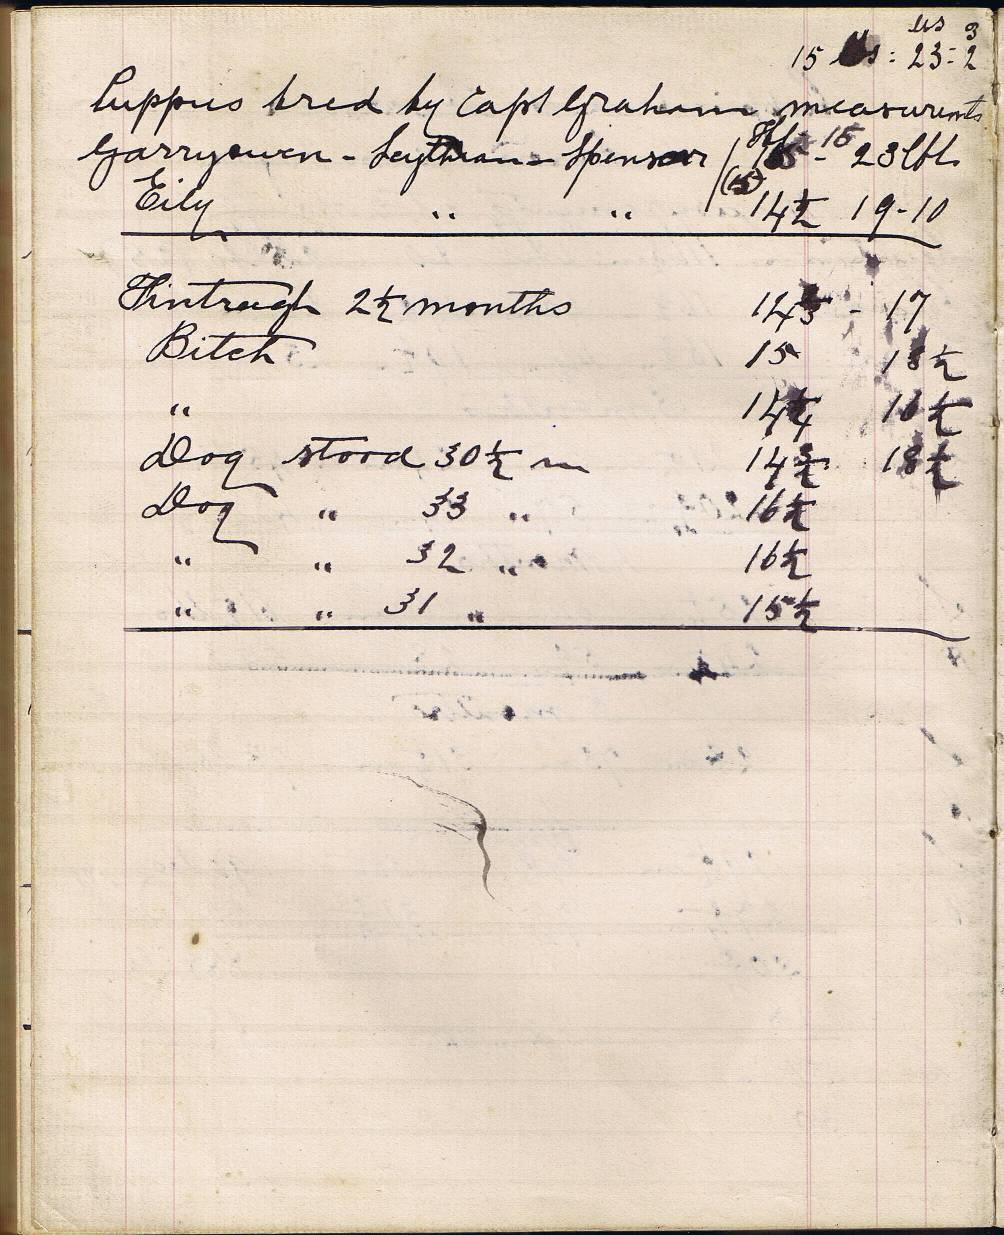 lbs 3
15 : 23 - 2
Puppies bred by Capt Graham measurements
Garryowen - Scythian - Spenser (15) 15 - 23 lbs
Eily " " 14½ 19-10
Fintragh 2½ months 14 - 17
Bitch 15 18½
" 14 16½
Dog stood 30½ in 14 18½
Dog " 33 " 16½
" " 32 " 16½
" " 31 " 15½